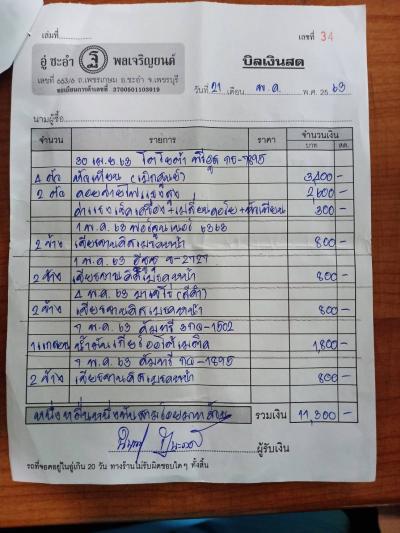 เล่มที่
เลขที่ 34
อู่ ชะอำ ฐ พลเจริญยนต์
บิลเงินสด
เลขที่ 663/6 ถ.เพชรเกษม อ.ชะอำ จ.เพชรบุรี
ทะเบียนการค้าเลขที่ 3700501103919
วันที่ 21 เดือน พ.ค. พ.ศ. 2563
นามผู้ซื้อ
จำนวน รายการ ราคา จำนวนเงิน
บาท สต.
30 เม.ย 63 โตโยต้า
4 ตัว หัวเทียน 3,400 -
2 ตัว 2,600 -
300 -
1 พ.ค. 63 ฟอร์จูนเนอร์ 6363
2 ข้าง เจียรจานดิสเบรคหน้า 800 -
1 พ.ค. 63 อีซูซุ 2727
2 ข้าง เจียรจานดิสเบรคหน้า 800 -
4 พ.ค. 63 ปาเจโร่ (สีดำ)
2 ข้าง เจียรจานดิสเบรคหน้า 800 -
7 พ.ค. 63 คัมรี่ 1502
น้ำมันเกียร์ออโต้เมติก 1,800 -
7 พ.ค. 63 คัมรี่ 1895
2 ข้าง เจียรจานดิสเบรคหน้า 800 -
หนึ่งหมื่นหนึ่งพันสามร้อยบาทถ้วน รวมเงิน 11,300 -
ผู้รับเงิน
รถที่จอดอยู่ในอู่เกิน 20 วัน ทางร้านไม่รับผิดชอบใดๆ ทั้งสิ้น